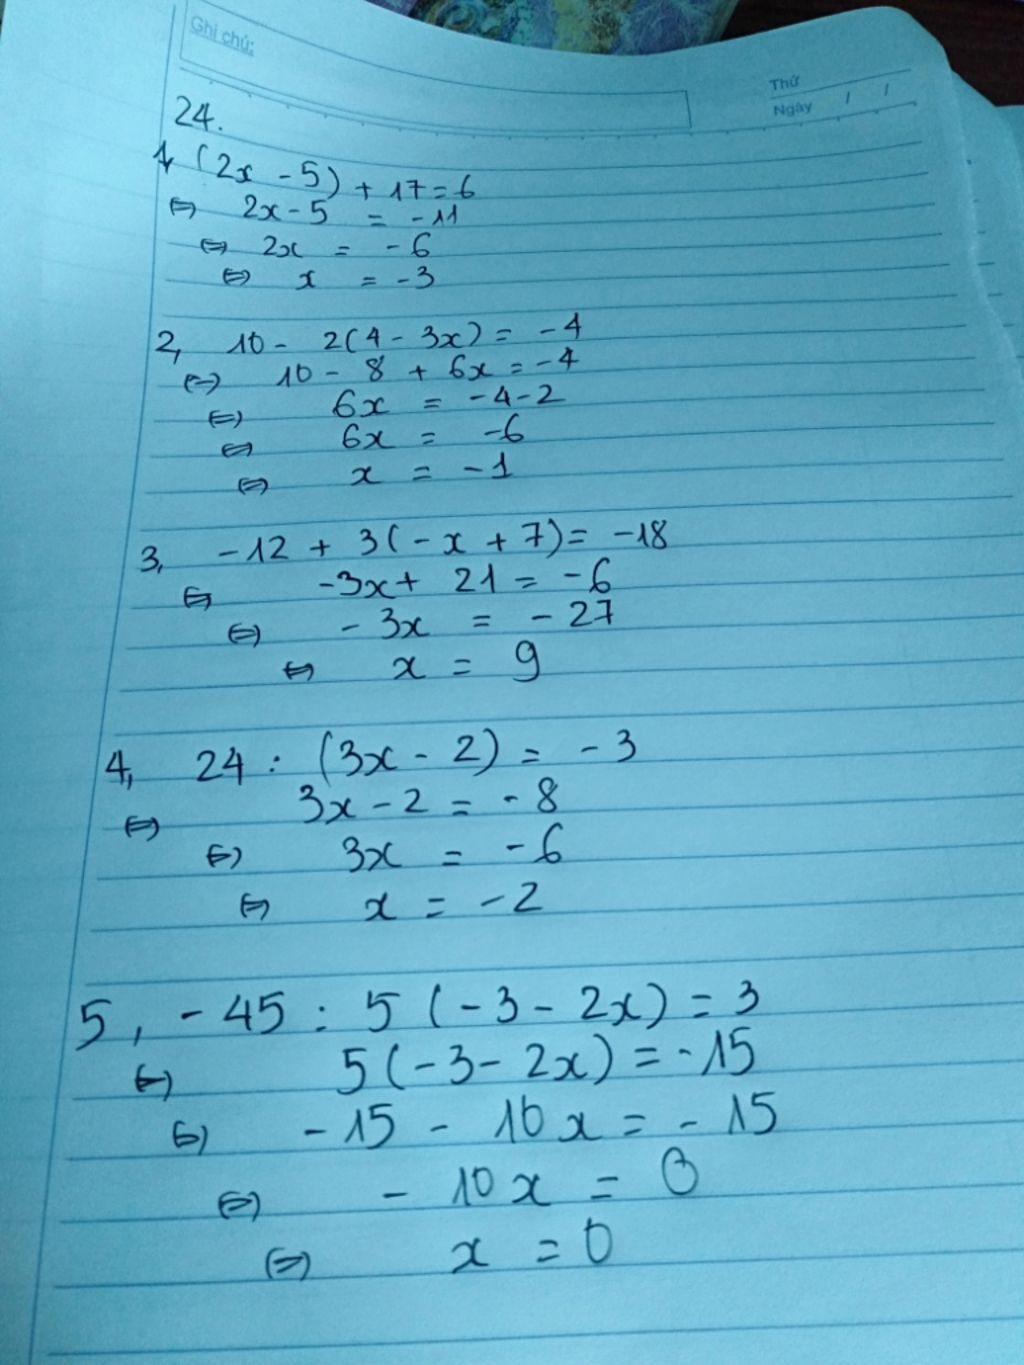 Ghi chú:
Thứ
Ngày / /
24.
1, (2x - 5) + 17 = 6
⇔ 2x - 5 = - 11
⇔ 2x = - 6
⇔ x = - 3
2, 10 - 2(4 - 3x) = - 4
⇔ 10 - 8 + 6x = - 4
⇔ 6x = - 4 - 2
⇔ 6x = - 6
⇔ x = - 1
3, - 12 + 3(- x + 7) = - 18
⇔ - 3x + 21 = - 6
⇔ - 3x = - 27
⇔ x = 9
4, 24 : (3x - 2) = - 3
⇔ 3x - 2 = - 8
⇔ 3x = - 6
⇔ x = - 2
5, - 45 : 5 (- 3 - 2x) = 3
⇔ 5(- 3 - 2x) = - 15
⇔ - 15 - 10x = - 15
⇔ - 10x = 0
⇔ x = 0